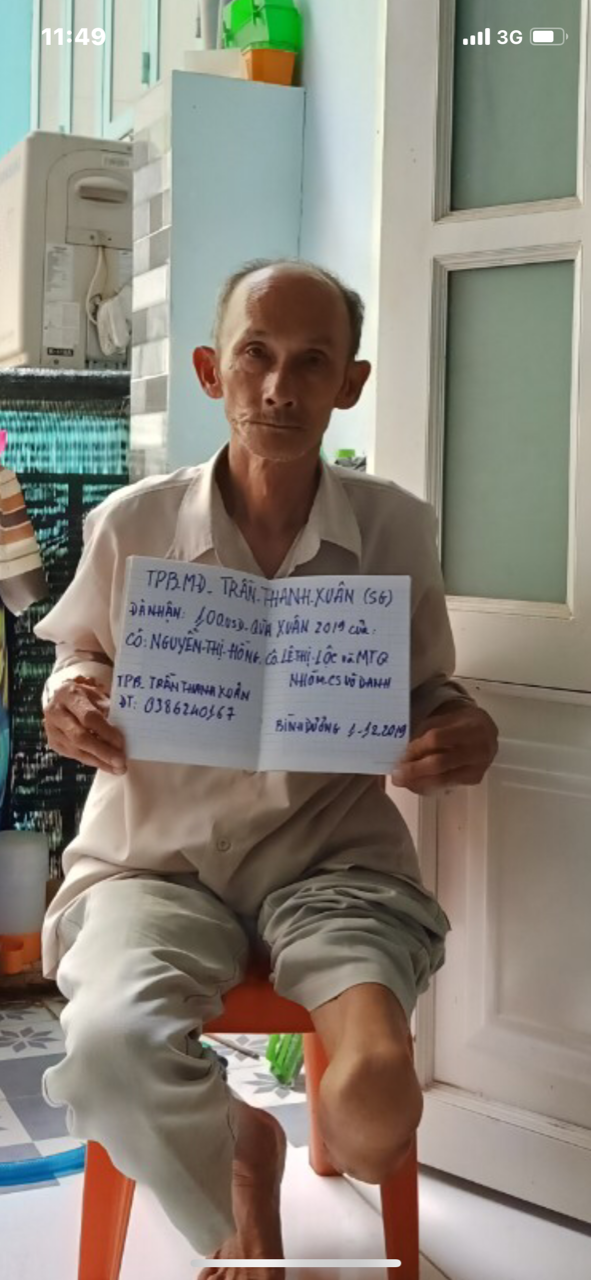 11:49
3G
TPB.MĐ. TRẦN.THANH.XUÂN (SG)
ĐÃ NHẬN: 100USD. QUÀ XUÂN 2019 CỦA:
CÔ: NGUYỄN.THỊ.HỒNG, CÔ.LÊ THỊ.LỘC và MTQ
NHÓM.CS VÔ DANH
TPB. TRẦN THANH XUÂN
ĐT: 0386240167
BÌNH DƯƠNG 1-12.2019